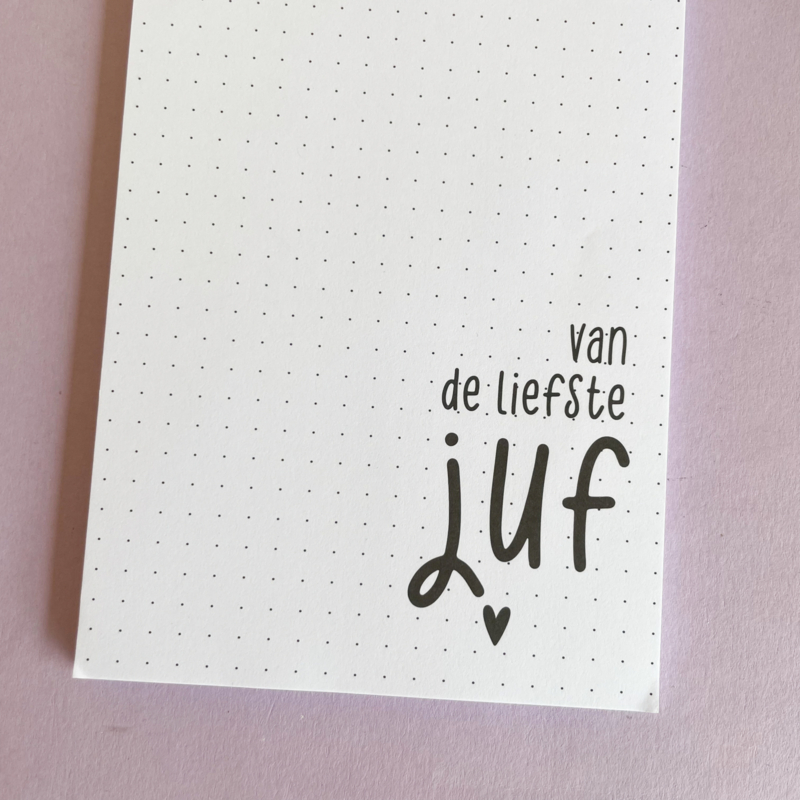 van
de liefste
juf